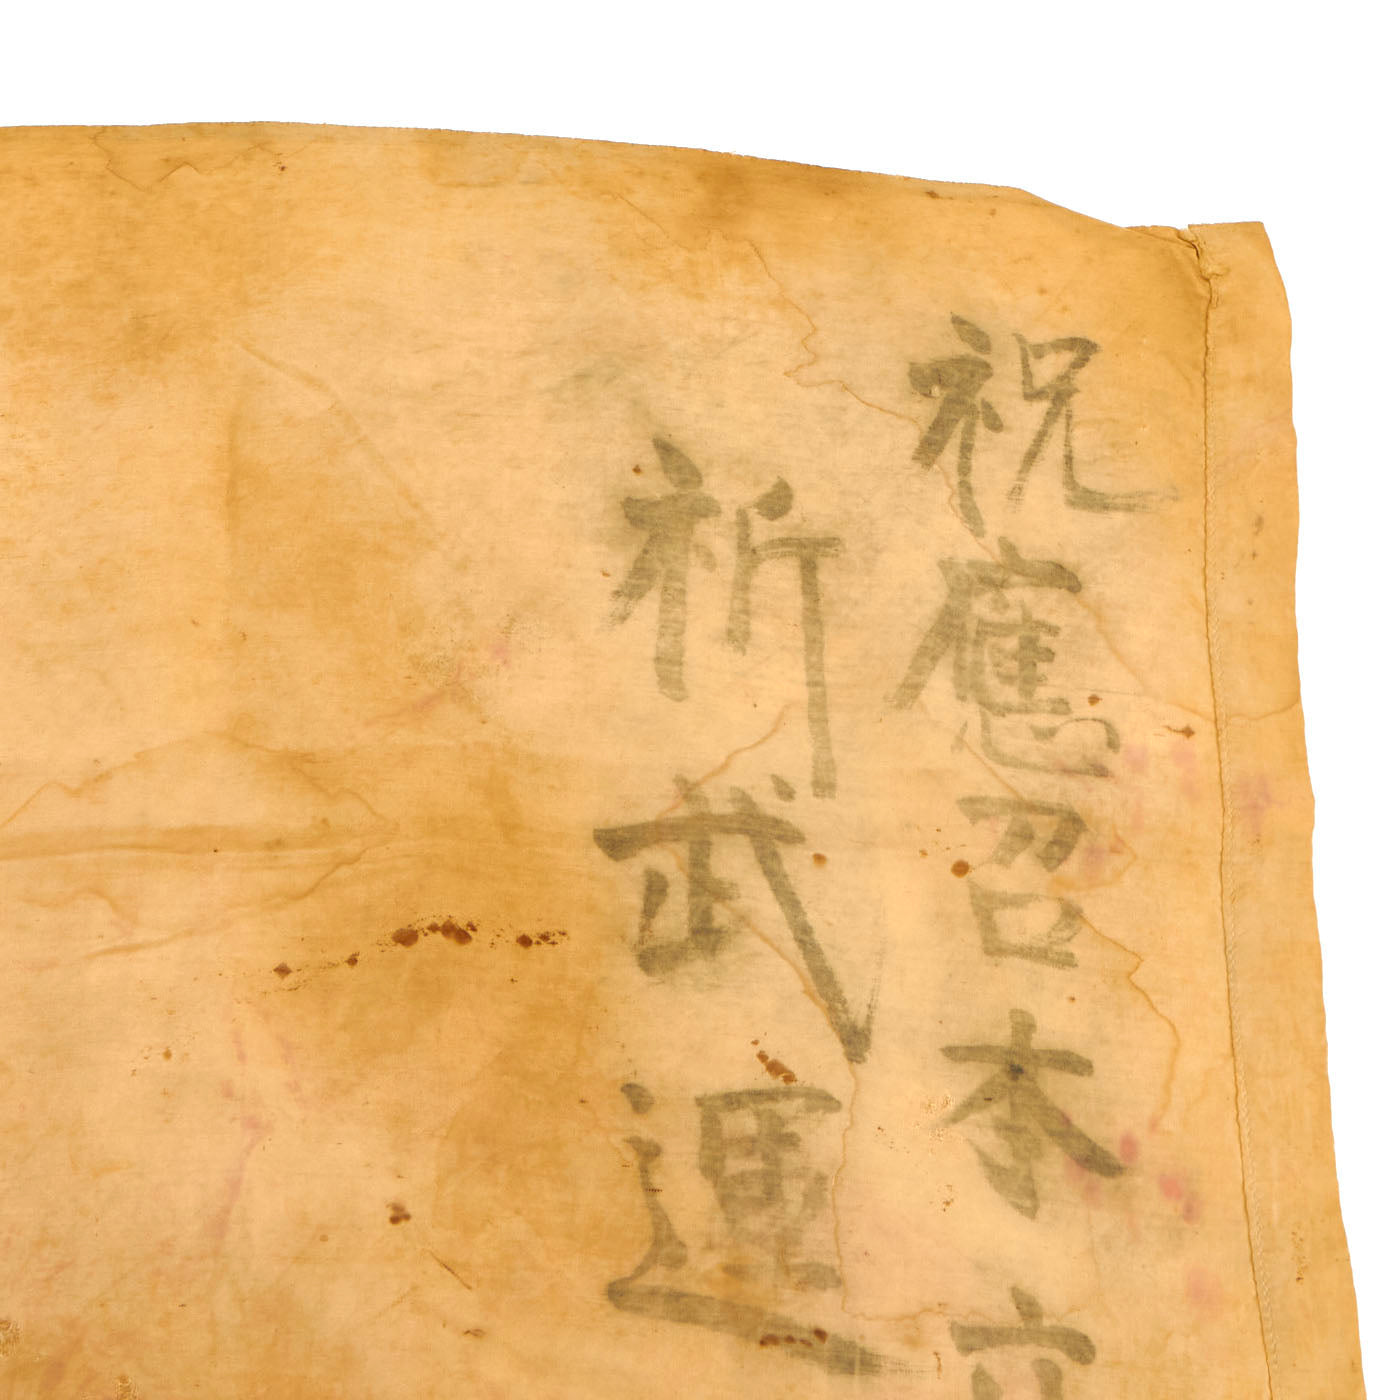 祝應召本
祈武運